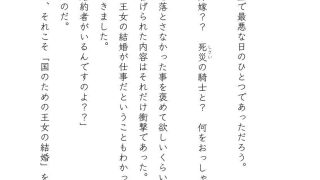 で最悪な日のひとつであっただろう。
嫁？？　死災の騎士と？　何をおっしゃ
落とさなかった事を褒めて欲しいくらい
げられた内容はそれだけ衝撃であった。
王女の結婚が仕事だということもわかっ
きました。
約者がいるんですのよ？？」
のだ。
、それこそ『国のための王女の結婚』を